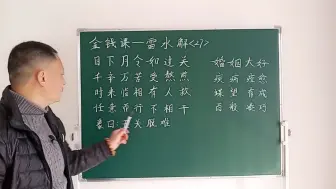 金钱课一雷水解<27>
目下月令如过关
千辛万苦受熬煎
时来恰相有人救
任意所行不相干
象曰:  天赐难
婚姻大好
疾病痊愈
谋望有成
百般凑巧